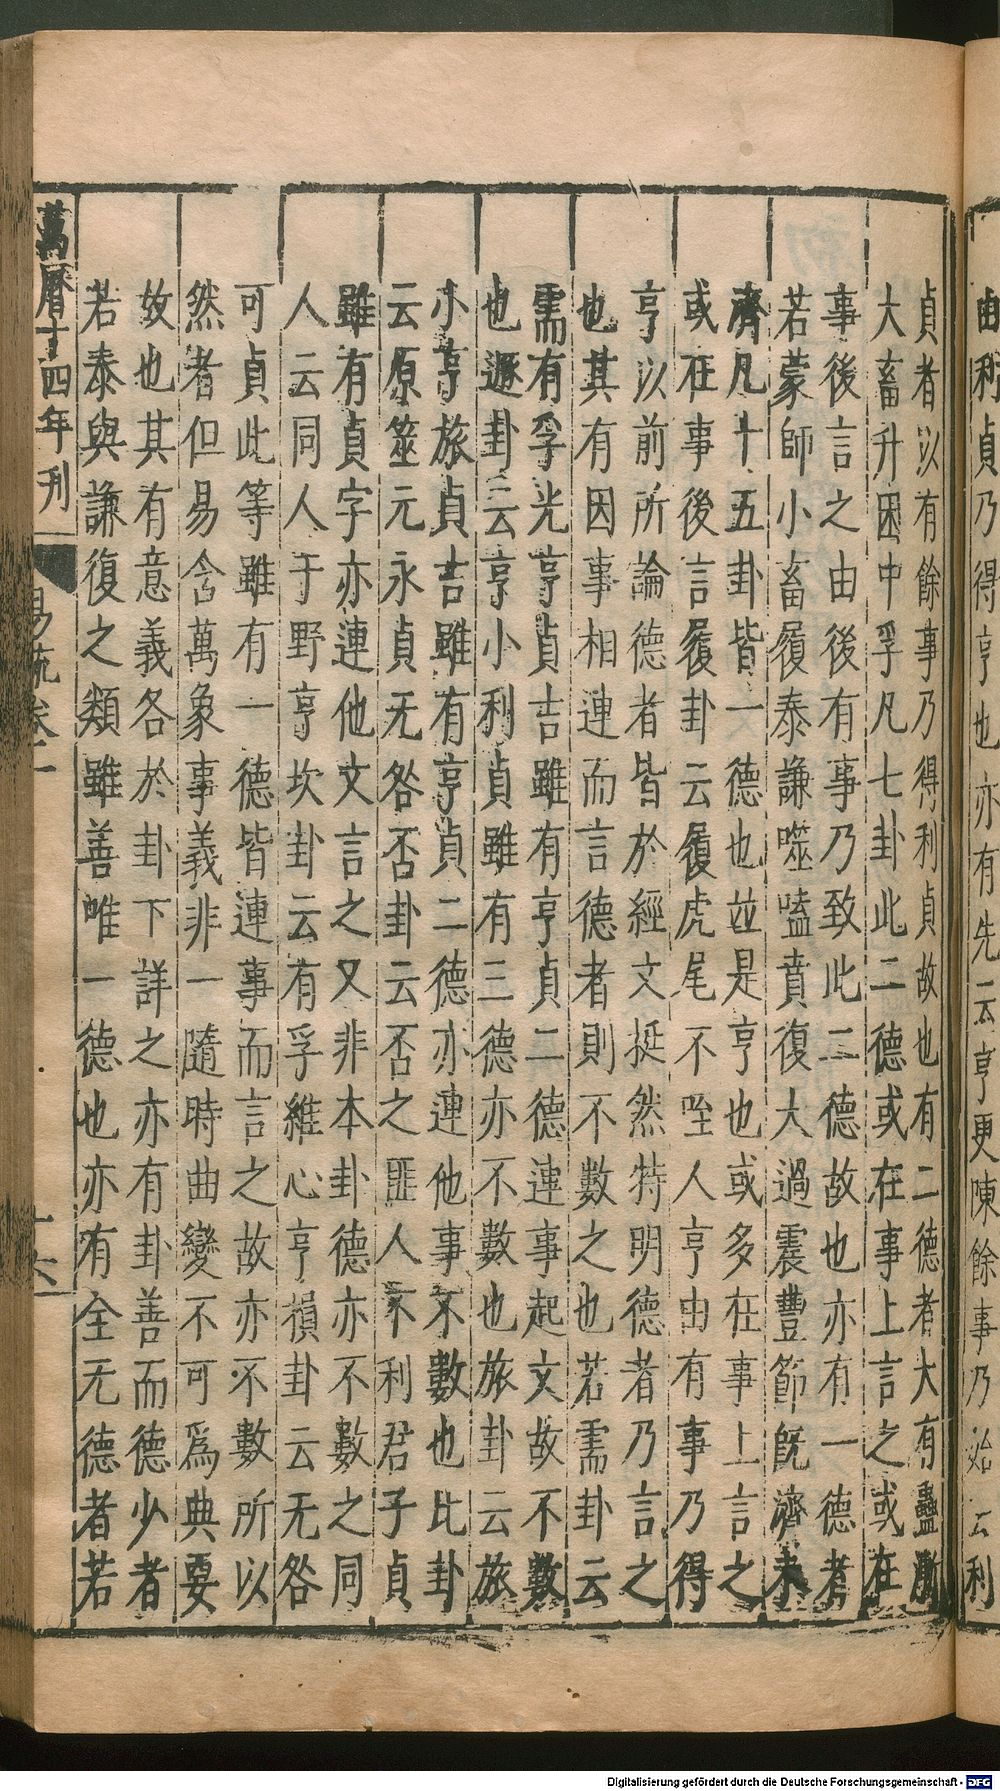 由利貞乃得亨也亦有先云亨更陳餘事乃始云利
貞者以有餘事乃得利貞故也有二德者大有蠱漸
大畜升困中孚凡七卦此二德或在事上言之或在
事後言之由後有事乃致此二德故也亦有一德者
若蒙師小畜履泰謙噬嗑賁復大過震豐節旣濟未
濟凡十五卦皆一德也並是亨也或多在事上言之
或在事後言履卦云履虎尾不咥人亨由有事乃得
亨以前所論德者皆於經文挺然特明德者乃言之
也其有因事相連而言德者則不數之也若需卦云
需有孚光亨貞吉雖有亨貞二德連事起文故不數
也遯卦云亨小利貞雖有三德亦不數也旅卦云旅
小亨旅貞吉雖有亨貞二德亦連他事不數也比卦
云原筮元永貞无咎否卦云否之匪人不利君子貞
雖有貞字亦連他文言之又非本卦德亦不數之同
人云同人于野亨坎卦云有孚維心亨損卦云无咎
可貞此等雖有一德皆連事而言之故亦不數所以
然者但易含萬象事義非一隨時曲變不可爲典要
故也其有意義各於卦下詳之亦有卦善而德少者
若泰與謙復之類雖善唯一德也亦有全无德者若
萬曆十四年刊
易疏卷一
十六
Digitalisierung gefördert durch die Deutsche Forschungsgemeinschaft - DFG